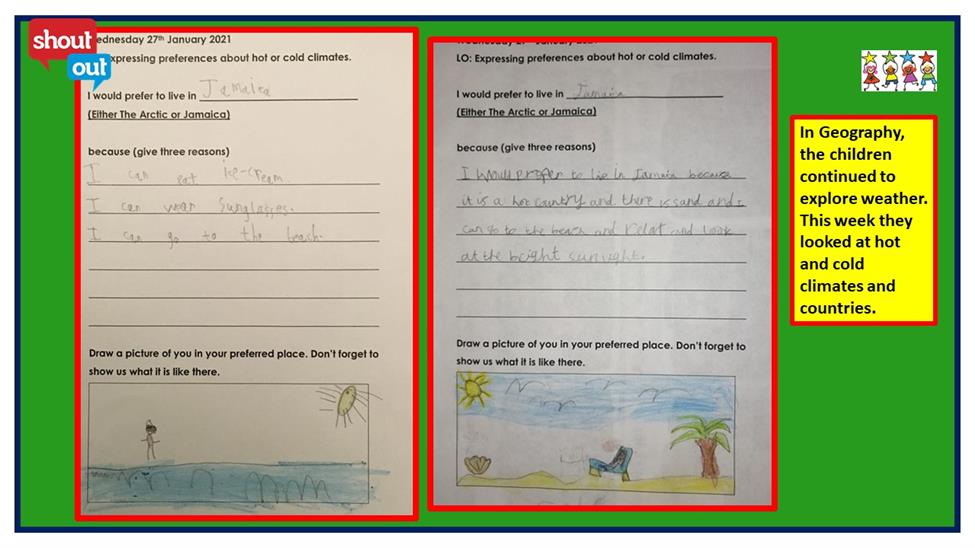 shout
out
ednesday 27th January 2021
xpressing preferences about hot or cold climates.
I would prefer to live in Jamaica
(Either The Arctic or Jamaica)
because (give three reasons)
I can eat ice-cream.
I can wear sunglasses.
I can go to the beach.
Draw a picture of you in your preferred place. Don't forget to
show us what it is like there.
LO: Expressing preferences about hot or cold climates.
I would prefer to live in Jamaica
(Either The Arctic or Jamaica)
because (give three reasons)
I would prefer to live in Jamaica because
it is a hot country and there is sand and I
can go to the beach and relat and look
at the bright sunlight.
Draw a picture of you in your preferred place. Don't forget to
show us what it is like there.
In Geography,
the children
continued to
explore weather.
This week they
looked at hot
and cold
climates and
countries.